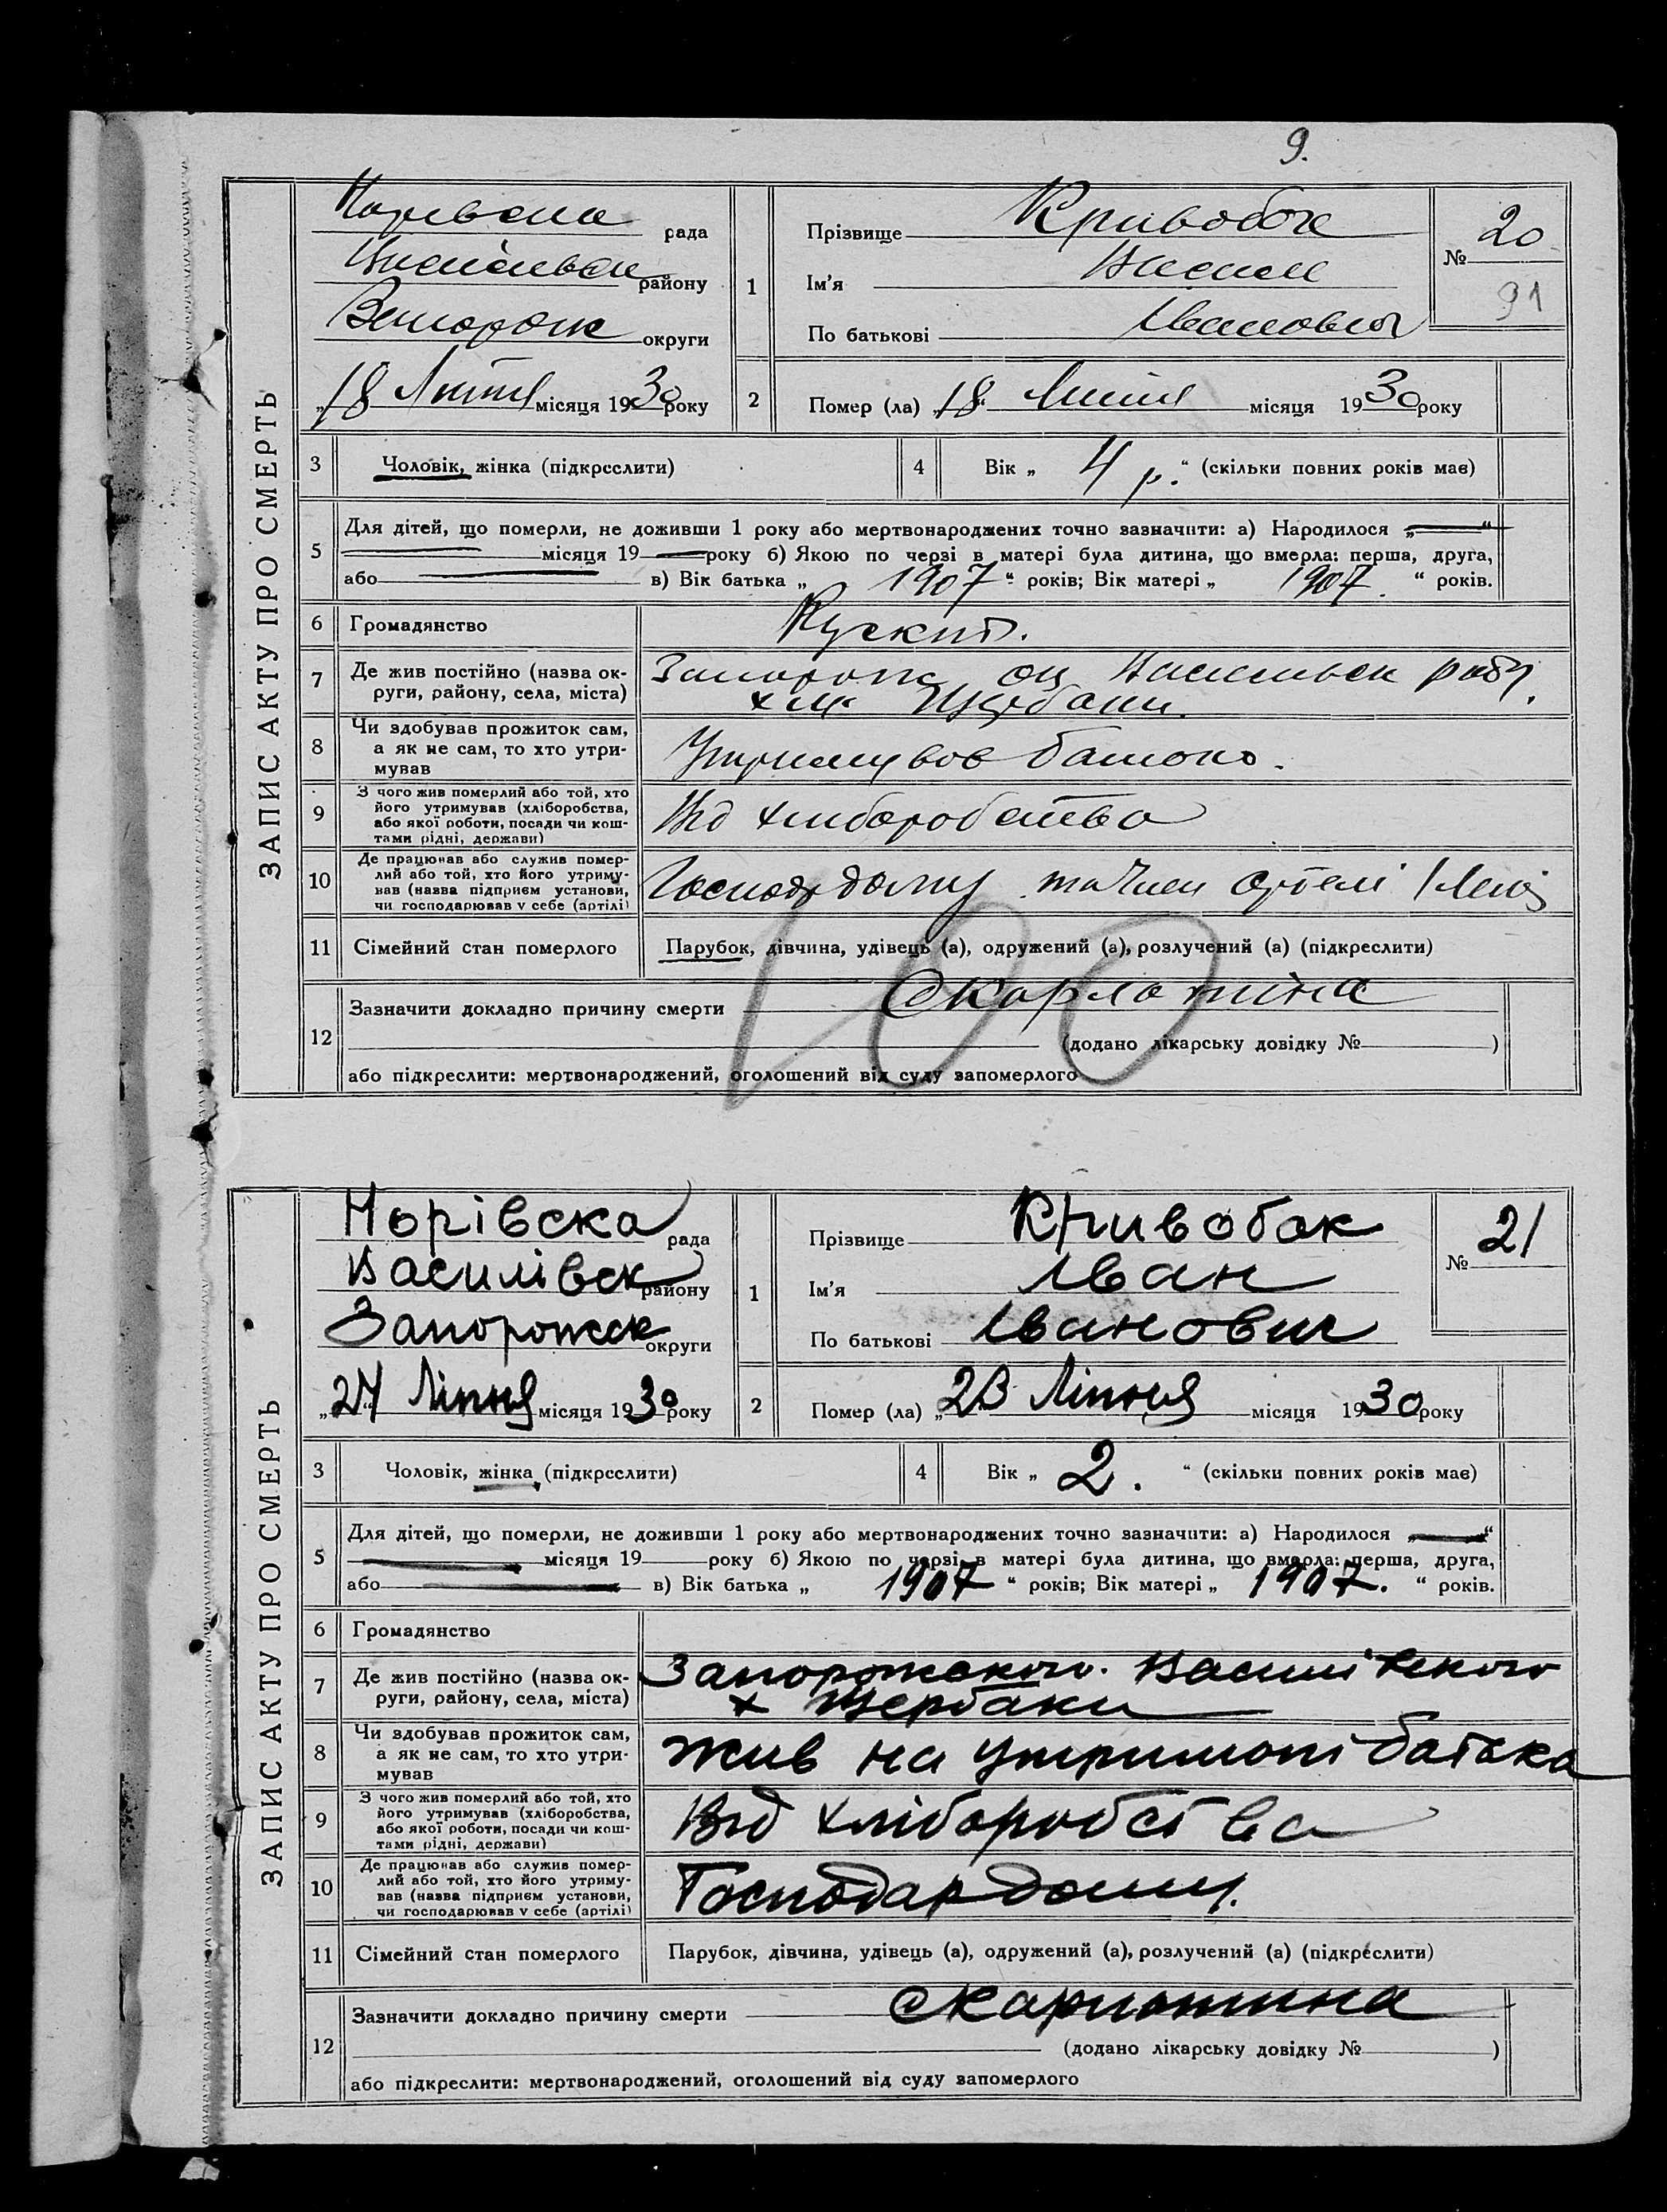 9.
ЗАПИС АКТУ ПРО СМЕРТЬ
рада
району
округи
„18 Липня місяця 1930 року
1
Прізвище Кривобок
Ім'я Василь
По батькові Іванович
№ 20
91
2 Помер (ла) „18 Липня місяця 1930 року
3 Чоловік, жінка (підкреслити)
4 Вік „ 4 р. “ (скільки повних років має)
5 Для дітей, що померли, не доживши 1 року або мертвонароджених точно зазначити: а) Народилося „ “
місяця 19 року б) Якою по черзі в матері була дитина, що вмерла: перша, друга,
або в) Вік батька „ 1907 “ років; Вік матері „ 1907. “ років.
6 Громадянство
7 Де жив постійно (назва ок-
руги, району, села, міста)
8 Чи здобував прожиток сам,
а як не сам, то хто утри-
мував
Утримував батько.
9 З чого жив померлий або той, хто
його утримував (хліборобства,
або якої роботи, посади чи кош-
тами рідні, держави)
Від хліборобства
10 Де працював або служив помер-
лий або той, хто його утриму-
вав (назва підприєм установи,
чи господарював у себе (артілі)
Господар дому та член артелі
11 Сімейний стан померлого
Парубок, дівчина, удівець (а), одружений (а), розлучений (а) (підкреслити)
100
12 Зазначити докладно причину смерти Скарлатіна
(додано лікарську довідку № )
або підкреслити: мертвонароджений, оголошений від суду запомерлого
ЗАПИС АКТУ ПРО СМЕРТЬ
Норівска рада
Василівск району
Запорожск округи
„24“ Ліпня місяця 1930 року
1
Прізвище Кривобок
Ім'я Іван
По батькові Іванович
№ 21
2 Помер (ла) „23 Ліпня місяця 1930 року
3 Чоловік, жінка (підкреслити)
4 Вік „ 2. “ (скільки повних років має)
5 Для дітей, що померли, не доживши 1 року або мертвонароджених точно зазначити: а) Народилося „ “
місяця 19 року б) Якою по черзі в матері була дитина, що вмерла: перша, друга,
або в) Вік батька „ 1907 “ років; Вік матері „ 1907. “ років.
6 Громадянство
7 Де жив постійно (назва ок-
руги, району, села, міста)
Запорожского. Василівского
х Щербаки
8 Чи здобував прожиток сам,
а як не сам, то хто утри-
мував
Жив на утримані батька
9 З чого жив померлий або той, хто
його утримував (хліборобства,
або якої роботи, посади чи кош-
тами рідні, держави)
Від хліборобства
10 Де працював або служив помер-
лий або той, хто його утриму-
вав (назва підприєм установи,
чи господарював у себе (артілі)
Господар дому.
11 Сімейний стан померлого
Парубок, дівчина, удівець (а), одружений (а), розлучений (а) (підкреслити)
12 Зазначити докладно причину смерти Скарлатина
(додано лікарську довідку № )
або підкреслити: мертвонароджений, оголошений від суду запомерлого